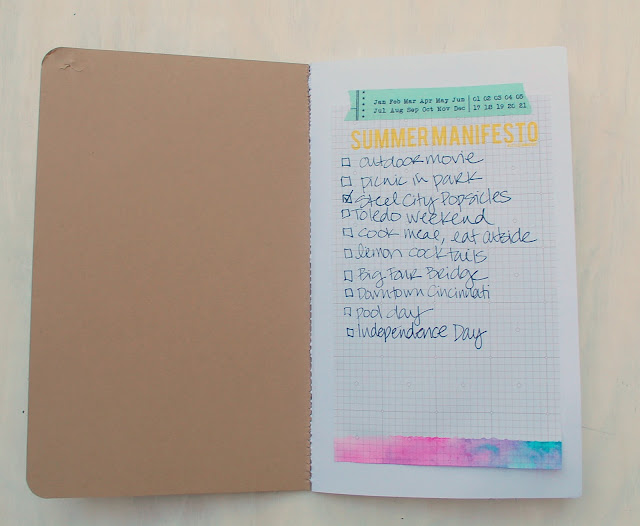 Jan Feb Mar Apr May Jun | 01 02 03 04 05
Jul Aug Sep Oct Nov Dec | 17 18 19 20 21
SUMMER MANIFESTO
outdoor movie
picnic in park
Steel City Popsicles
Toledo weekend
cook meal, eat outside
lemon cocktails
Big Four Bridge
Downtown Cincinnati
pool day
Independence Day